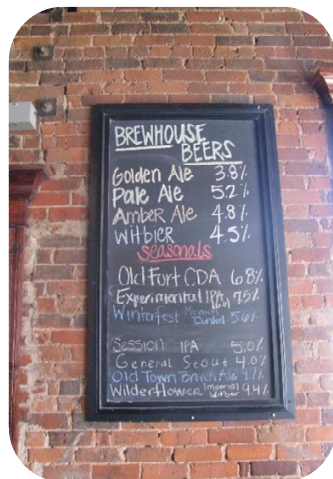 BREWHOUSE
BEERS
Golden Ale 3.8%
Pale Ale 5.2%
Amber Ale 4.8%
Witbier 4.5%
Seasonals
Old Fort CDA 6.8%
Experimental IPA 7.5%
Winterfest Munich Dunkel 5.6%
Session IPA 5.0%
General Stout 4.0%
Old Town Brown Ale 4.7%
Wilderflower Imperial Witbier 9.4%